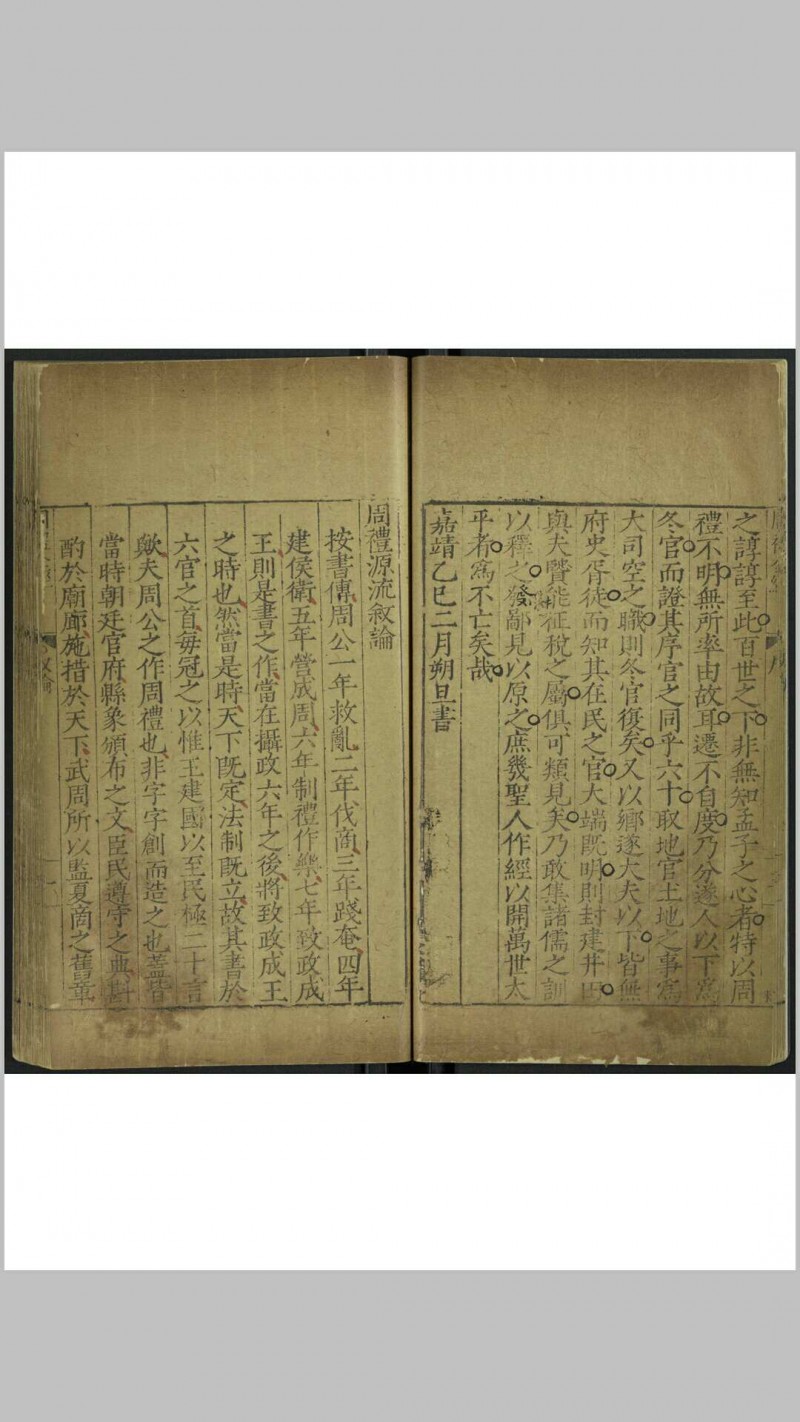 之諄諄至此百世之下非無知孟子之心者特以周
禮不明無所率由故耳遷不自度乃分遂人以下爲
冬官而證其序官之同乎六十取地官土地之事爲
大司空之職則冬官復矣又以鄉遂大夫以下皆無
府史胥徒而知其在民之官大端既明則封建井田
與夫賢能征稅之屬俱可類見矣乃敢集諸儒之訓
以釋之發鄙見以原之庶幾聖人作經以開萬世太
平者爲不亡矣哉
嘉靖乙巳二月朔旦書
周禮源流敘論
按書傳周公一年救亂二年伐商三年踐奄四年
建侯衛五年營成周六年制禮作樂七年致政成
王則是書之作當在攝政六年之後將致政成王
之時也然當是時天下既定法制既立故其書於
六官之首每冠之以惟王建國以至民極二十言
歟夫周公之作周禮也非字字創而造之也蓋皆
當時朝廷官府縣象頒布之文臣民遵守之典斟
酌於廟廊施措於天下武周所以監夏商之舊章